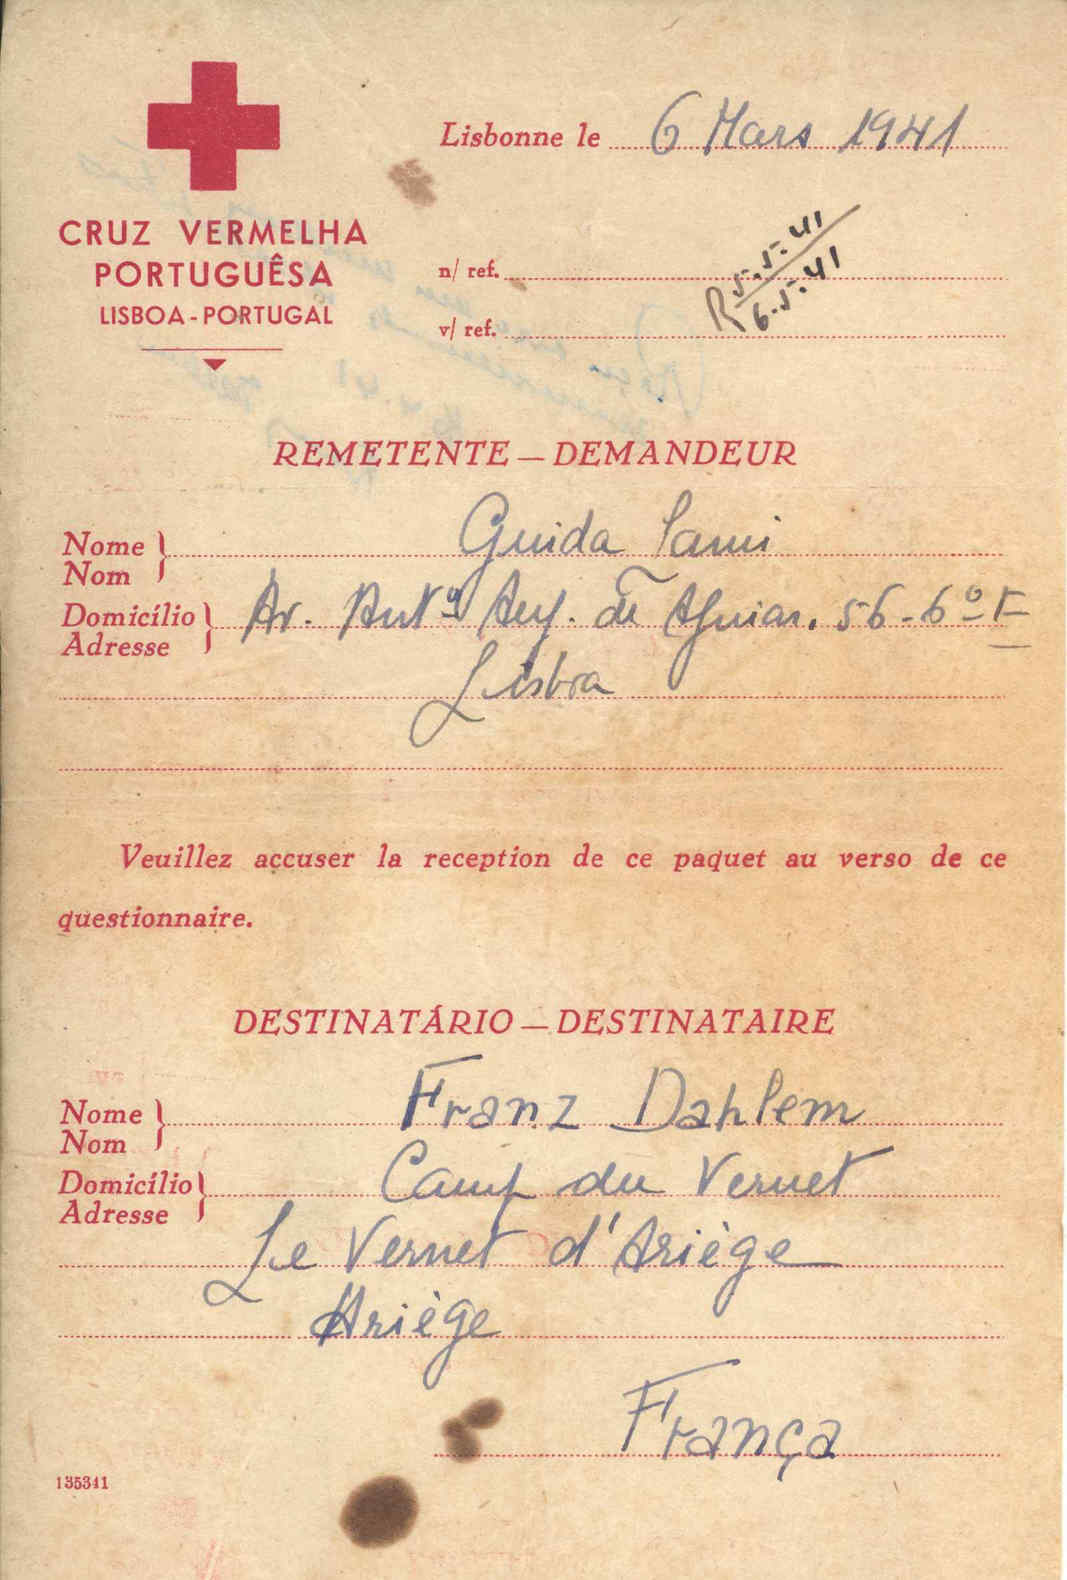 Lisbonne le 6 Mars 1941
CRUZ VERMELHA
PORTUGUÊSA
LISBOA - PORTUGAL
n/ ref.
v/ ref.
R 5.5.41
6.5.41
REMETENTE — DEMANDEUR
Nome
Nom
Guida Lami
Domicílio
Adresse
Av. Antº Aug. de Aguiar. 56-6º E
Lisboa
Veuillez accuser la reception de ce paquet au verso de ce
questionnaire.
DESTINATÁRIO — DESTINATAIRE
Nome
Nom
Franz Dahlem
Domicílio
Adresse
Camp du Vernet
Le Vernet d'Ariège
Ariège
França
135341